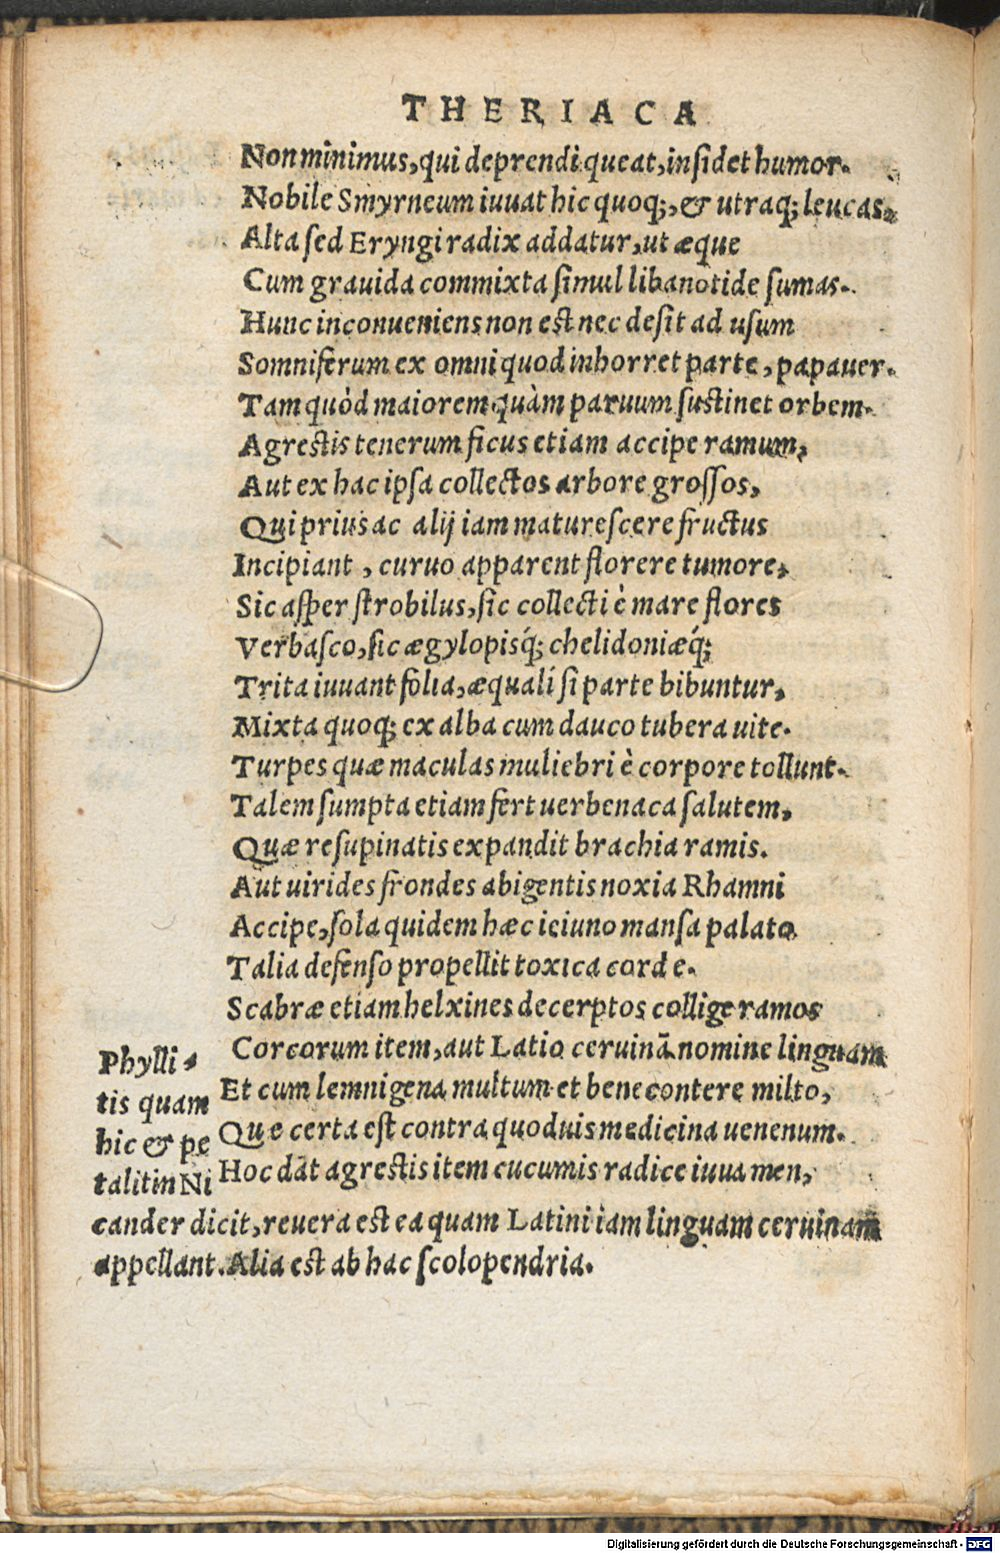 THERIACA
Non minimus, qui deprendi queat, insidet humor.
Nobile Smyrneum iuuat hic quoq;, & utraq; leucas.
Alta sed Eryngi radix addatur, ut æque
Cum grauida commixta simul libanotide sumas.
Hunc inconueniens non est nec desit ad usum
Somniferum ex omni quod inhorret parte, papauer.
Tam quòd maiorem quàm paruum sustinet orbem.
Agrestis tenerum ficus etiam accipe ramum,
Aut ex hac ipsa collectos arbore grossos,
Qui prius ac alij iam maturescere fructus
Incipiant, curuo apparent florere tumore,
Sic asper strobilus, sic collecti è mare flores
Verbasco, sic ægylopisq́; chelidoniæq́;
Trita iuuant folia, æquali si parte bibuntur,
Mixta quoq; ex alba cum dauco tubera uite.
Turpes quæ maculas muliebri è corpore tollunt.
Talem sumpta etiam fert uerbenaca salutem,
Quæ resupinatis expandit brachia ramis.
Aut uirides frondes abigentis noxia Rhamni
Accipe, sola quidem hæc ieiuno mansa palato
Talia defenso propellit toxica corde.
Scabræ etiam helxines decerptos collige ramos
Corcorum item, aut Latio ceruinā nomine linguam
Et cum lemnigena multum et bene contere milto,
Que certa est contra quoduis medicina uenenum.
Hoc dāt agrestis item cucumis radice iuuamen,
Phylli-
tis quam
hic & pe
talitin Ni
cander dicit, reuera est ea quam Latini iam linguam ceruinam
appellant. Alia est ab hac scolopendria.
Digitalisierung gefördert durch die Deutsche Forschungsgemeinschaft - DFG